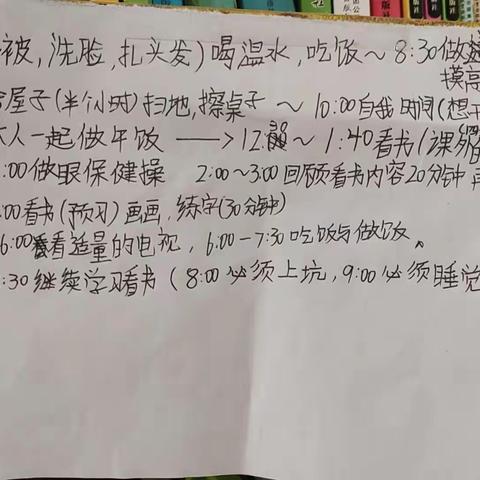 被,洗脸,扎头发)喝温水,吃饭~8:30做
摸高
屋子(半个小时)扫地,擦桌子 ~ 10:00自我时间(想干
人一起做午饭 ——>12:30~1:40看书(课外
:00做眼保健操 2:00~3:00回顾看书内容20分钟
:00看书(预习)画画,练字(30分钟)
6:00看适量的电视,6:00-7:30吃饭与做饭。
:30继续学习看书(8:00必须上坑,9:00必须睡觉